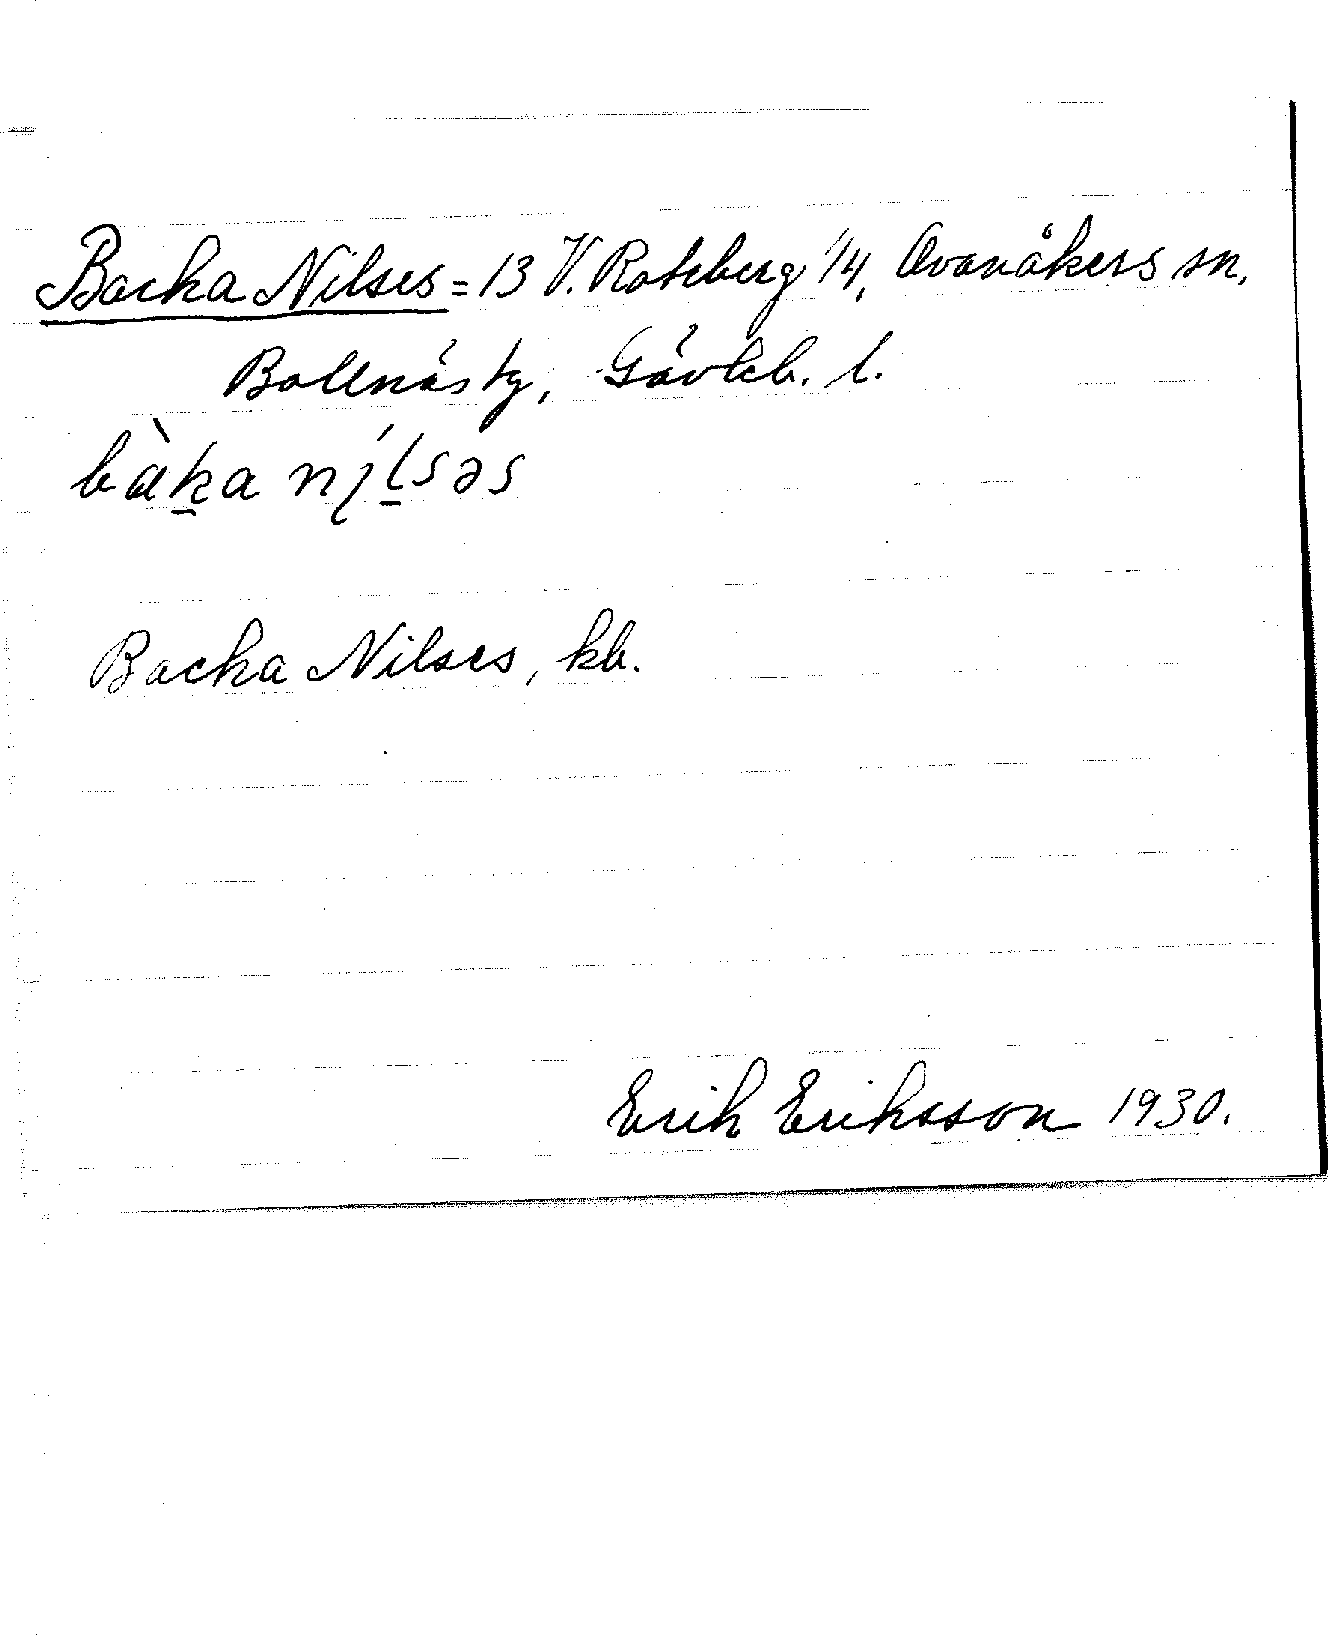 Backa Nilses = 13 V. Roteberg 1/4, Ovanåkers sn,
Bollnäs tg, Gävleb. l.
bàk̲a ní̡l̲səs
Backa Nilses, kb.
Erik Eriksson 1930.